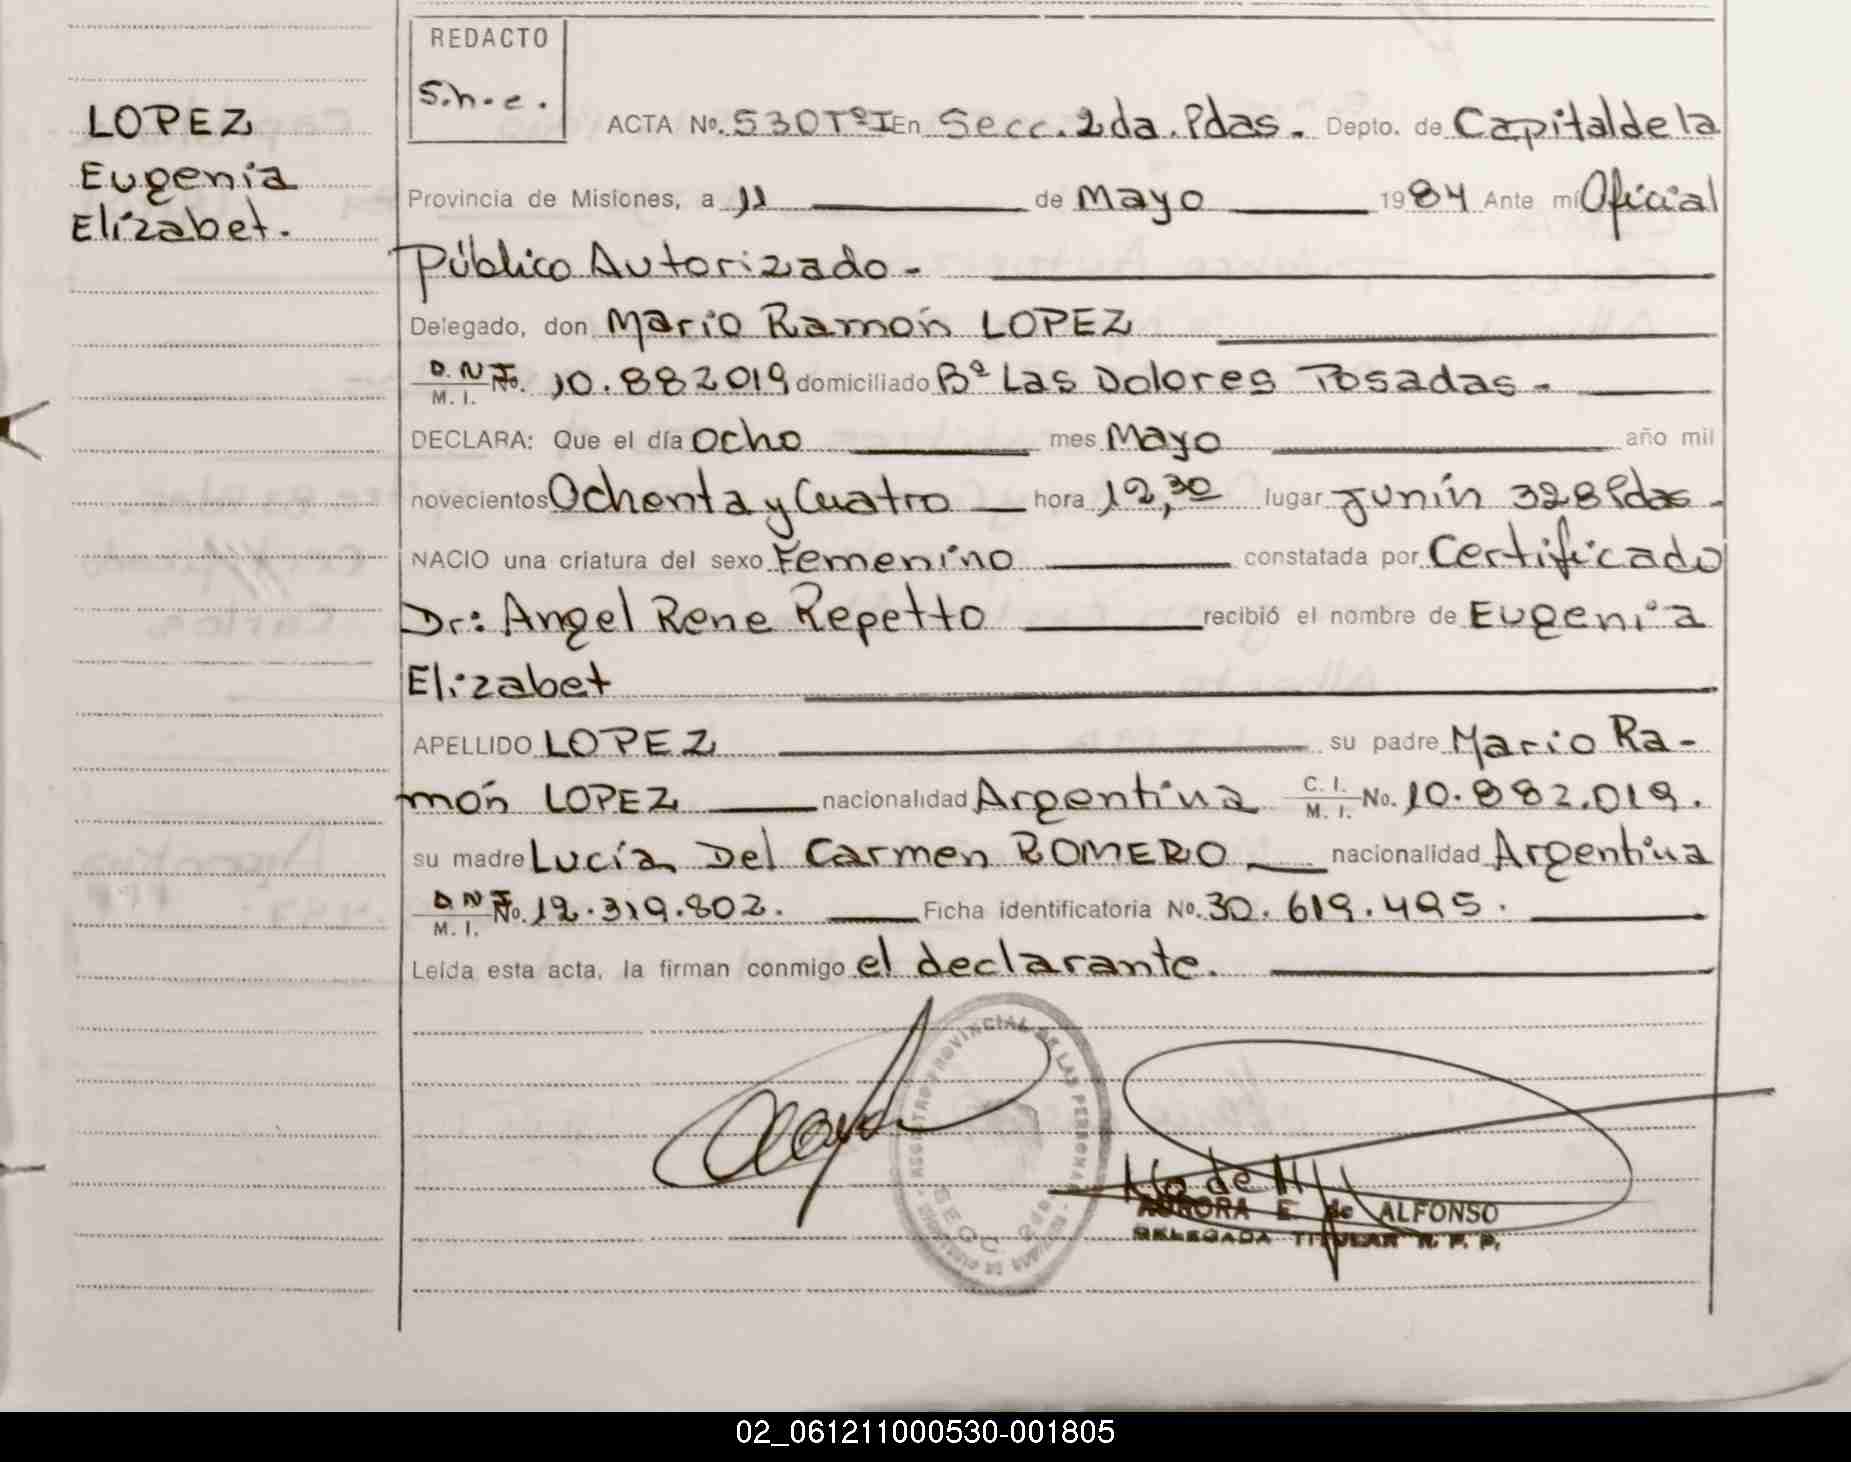 REDACTO
S.h.e.
LOPEZ
Eugenia
Elizabet.
ACTA No. 530 Tº I En Secc. 2da. Pdas. Depto. de Capital de la
Provincia de Misiones, a 11 de Mayo 1984 Ante mí Oficial
Público Autorizado -
Delegado, don Mario Ramón LOPEZ
D.N.I. No. 10.882019 domiciliado Bº Las Dolores Posadas -
M. I.
DECLARA: Que el día Ocho mes Mayo año mil
novecientos Ochenta y Cuatro hora 12,30 lugar Junín 328 Pdas -
NACIO una criatura del sexo Femenino constatada por Certificado
Dr: Angel Rene Repetto recibió el nombre de Eugenia
Elizabet
APELLIDO LOPEZ su padre Mario Ra-
món LOPEZ nacionalidad Argentina C. I. No. 10.882.019.
M. I.
su madre Lucía Del Carmen ROMERO nacionalidad Argentina
D.N.I. No. 12.319.802. Ficha identificatoria No. 30.619.495.
M. I.
Leída esta acta, la firman conmigo el declarante.
REGISTRO PROVINCIAL DE LAS PERSONAS
SECC
AURORA E. de ALFONSO
DELEGADA TITULAR R. P. P.
02_061211000530-001805